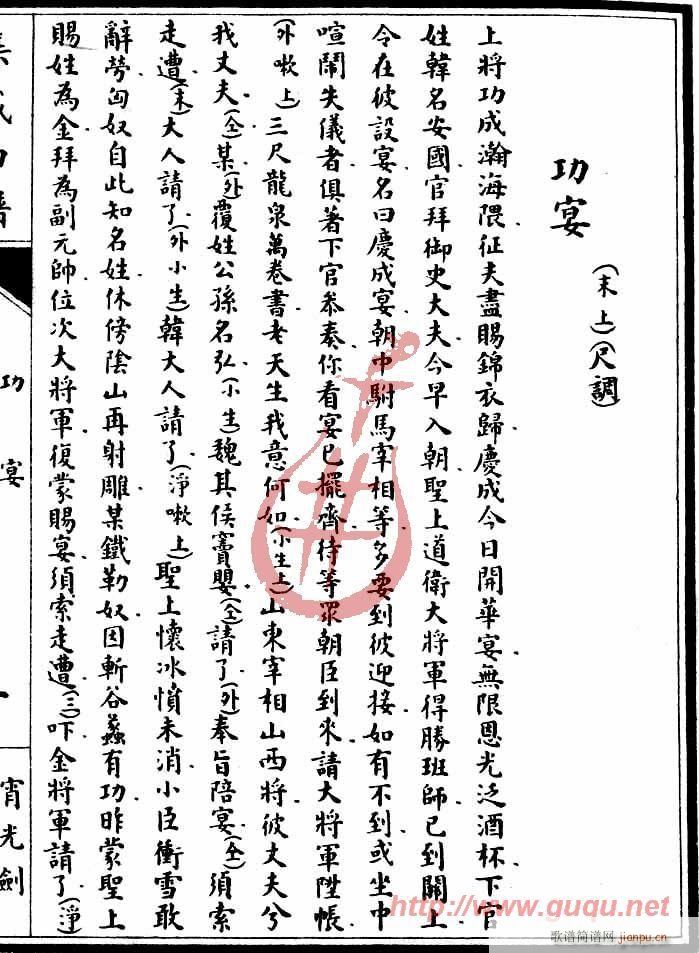 功宴
(末上)(尺調)
上將功成瀚海隈征夫盡賜錦衣歸慶成今日開華宴無限恩光泛酒杯下官
姓韓名安國官拜御史大夫今早入朝聖上道衛大將軍得勝班師已到關上
令在彼設宴名曰慶成宴朝中駙馬宰相等多要到彼迎接如有不到或坐中
喧鬧失儀者俱著下官叅奏你看宴已擺齊待等眾朝臣到來請大將軍陞帳
(外嗽上)三尺龍泉萬卷書老天生我意何如(小生上)山東宰相山西將彼丈夫兮
我丈夫(仝)某(外)覆姓公孫名弘(小生)魏其侯竇嬰(仝)請了(外)奉旨陪宴(仝)須索
走遭(末)大人請了(外小生)韓大人請了(淨嗽上)聖上懷冰憤未消小臣衝雪敢
辭勞匈奴自此知名姓休傍陰山再射雕某鐵勒奴因斬谷蠡有功昨蒙聖上
賜姓為金拜為副元帥位次大將軍復蒙賜宴須索走遭(三)吓金將軍請了(淨)
功宴
一
宵光劍
http://www.guqu.net
歌谱简谱网
jianpu.cn